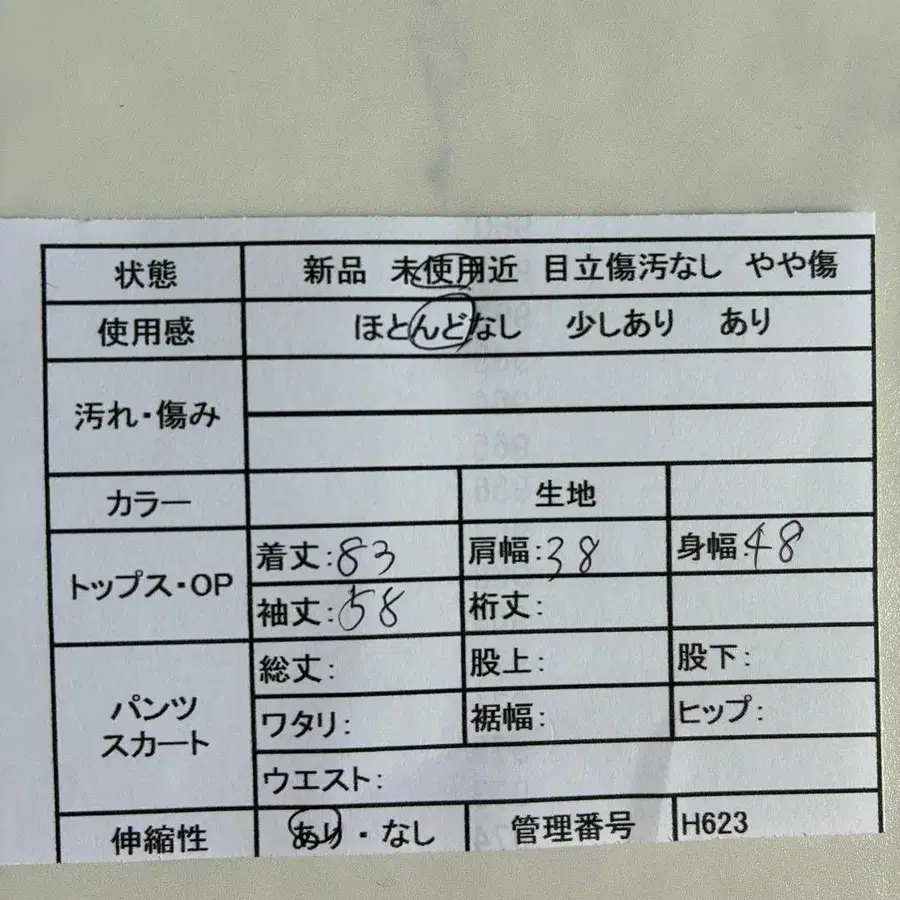 状態 新品 未使用近 目立傷汚なし やや傷
使用感 ほとんどなし 少しあり あり
汚れ・傷み
カラー 生地
トップス・OP 着丈:83 肩幅:38 身幅:48
袖丈:58 裄丈:
パンツ
スカート
総丈: 股上: 股下:
ワタリ: 裾幅: ヒップ:
ウエスト:
伸縮性 あり・なし 管理番号 H623